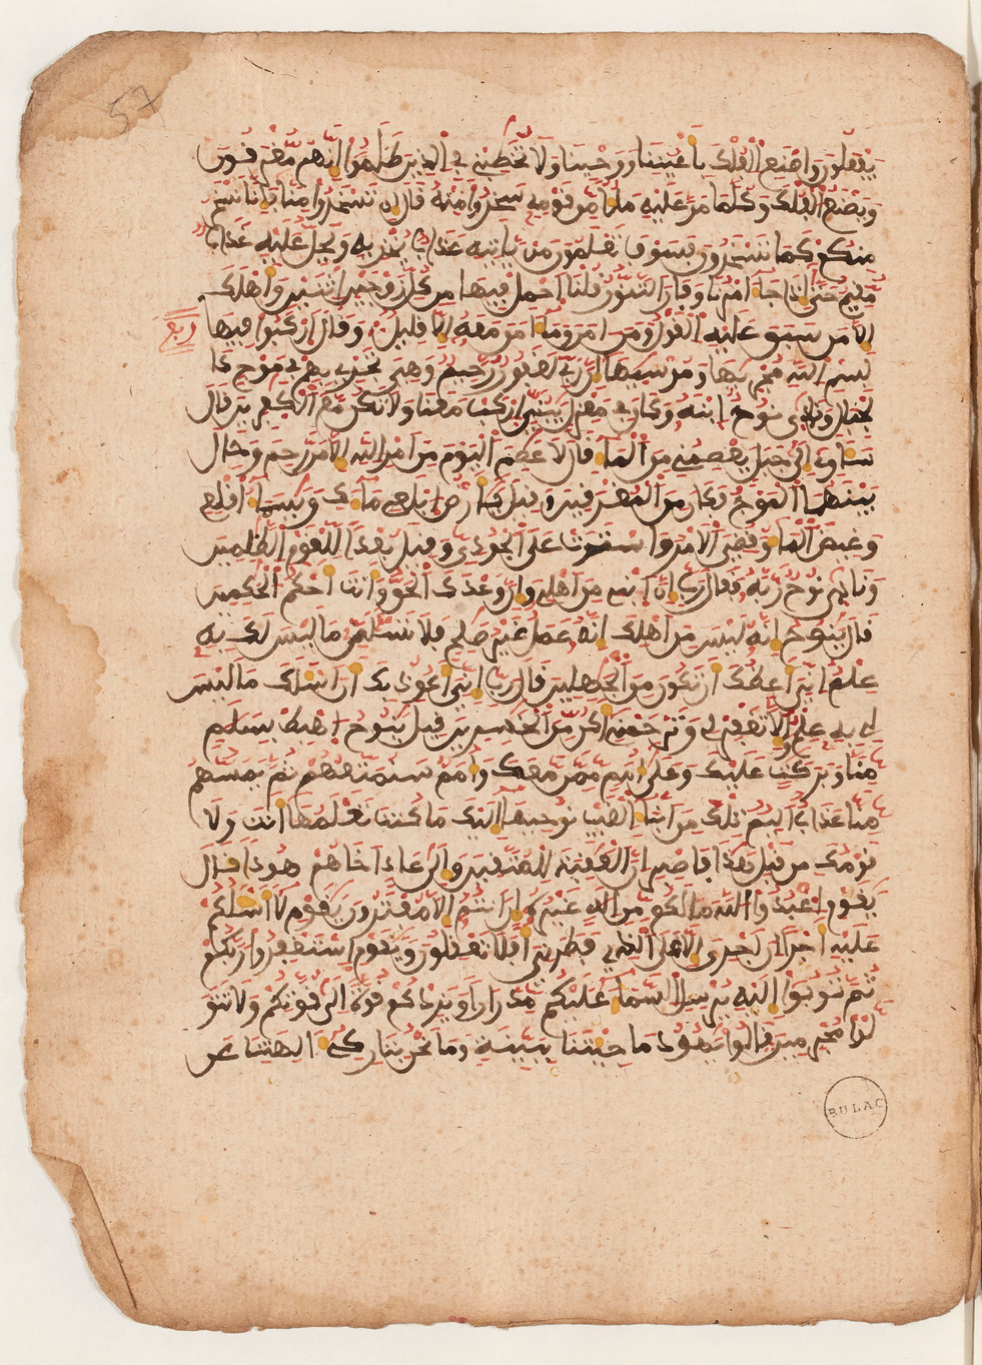 57
يفعلون واصنع الفلك باعيننا ووحينا ولا تخطبنى فى الذين ظلموا انهم مغرقون
ويصنع الفلك وكلما مر عليه ملا من قومه سخروا منه قال ان تسخروا منا فانا نسخر
منكم كما تسخرون فسوف تعلمون من ياتيه عذاب يخزيه ويحل عليه عذاب
مقيم حتى اذا جا امرنا وفار التنور قلنا احمل فيها من كل زوجين اثنين واهلك
الا من سبق عليه القول ومن امن وما امن معه الا قليل وقال اركبوا فيها
ربع
بسم الله مجريها ومرسيها ان ربى لغفور رحيم وهى تجرى بهم فى موج كا
لجبال ونادى نوح ابنه وكان فى معزل يبنى اركب معنا ولا تكن مع الكفرين قال
ساوى الى جبل يعصمنى من الما قال لا عاصم اليوم من امر الله الا من رحم وحال
بينهما الموج فكان من المغرقين وقيل يارض ابلعى ماك ويسما اقلعى
وغيض الما وقضى الامر واستوت على الجودى وقيل بعدا للقوم الظلمين
ونادى نوح ربه فقال رب ان ابنى من اهلى وان وعدك الحق وانت احكم الحكمين
قال ينوح انه ليس من اهلك انه عمل غير صلح فلا تسلن ما ليس لك به
علم انى اعظك ان تكون من الجهلين قال رب انى اعوذ بك ان اسلك ما ليس
لى به علم والا تغفر لى وترحمنى اكن من الخسرين قيل ينوح اهبط بسلم
منا وبركت عليك وعلى امم ممن معك وامم سنمتعهم ثم يمسهم
منا عذاب اليم تلك من انبا الغيب نوحيها اليك ما كنت تعلمها انت ولا
قومك من قبل هذا فاصبر ان العقبة للمتقين والى عاد اخاهم هودا قال
يقوم اعبدوا الله ما لكم من اله غيره ان انتم الا مفترون يقوم لا اسلكم
عليه اجرا ان اجرى الا على الذى فطرنى افلا تعقلون ويقوم استغفروا ربكم
ثم توبوا اليه يرسل السما عليكم مدرارا ويزدكم قوة الى قوتكم ولا تتو
لوا مجرمين قالوا يهود ما جيتنا ببينة وما نحن بتاركى الهتنا عن
BULAC